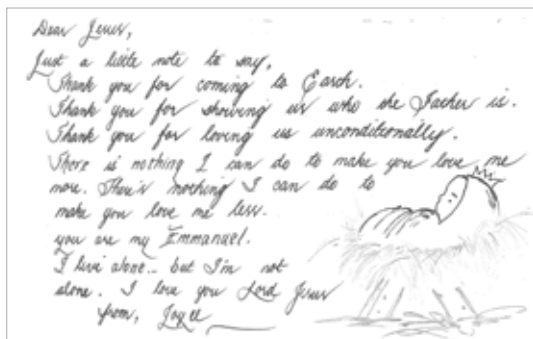 Dear Jesus,
Just a little note to say,
Thank you for coming to Earth.
Thank you for showing us who the Father is.
Thank you for loving us unconditionally.
There is nothing I can do to make you love me
more. There's nothing I can do to
make you love me less.
you are my Emmanuel.
I live alone.. but I'm not
alone. I love you Lord Jesus
from, Joyce